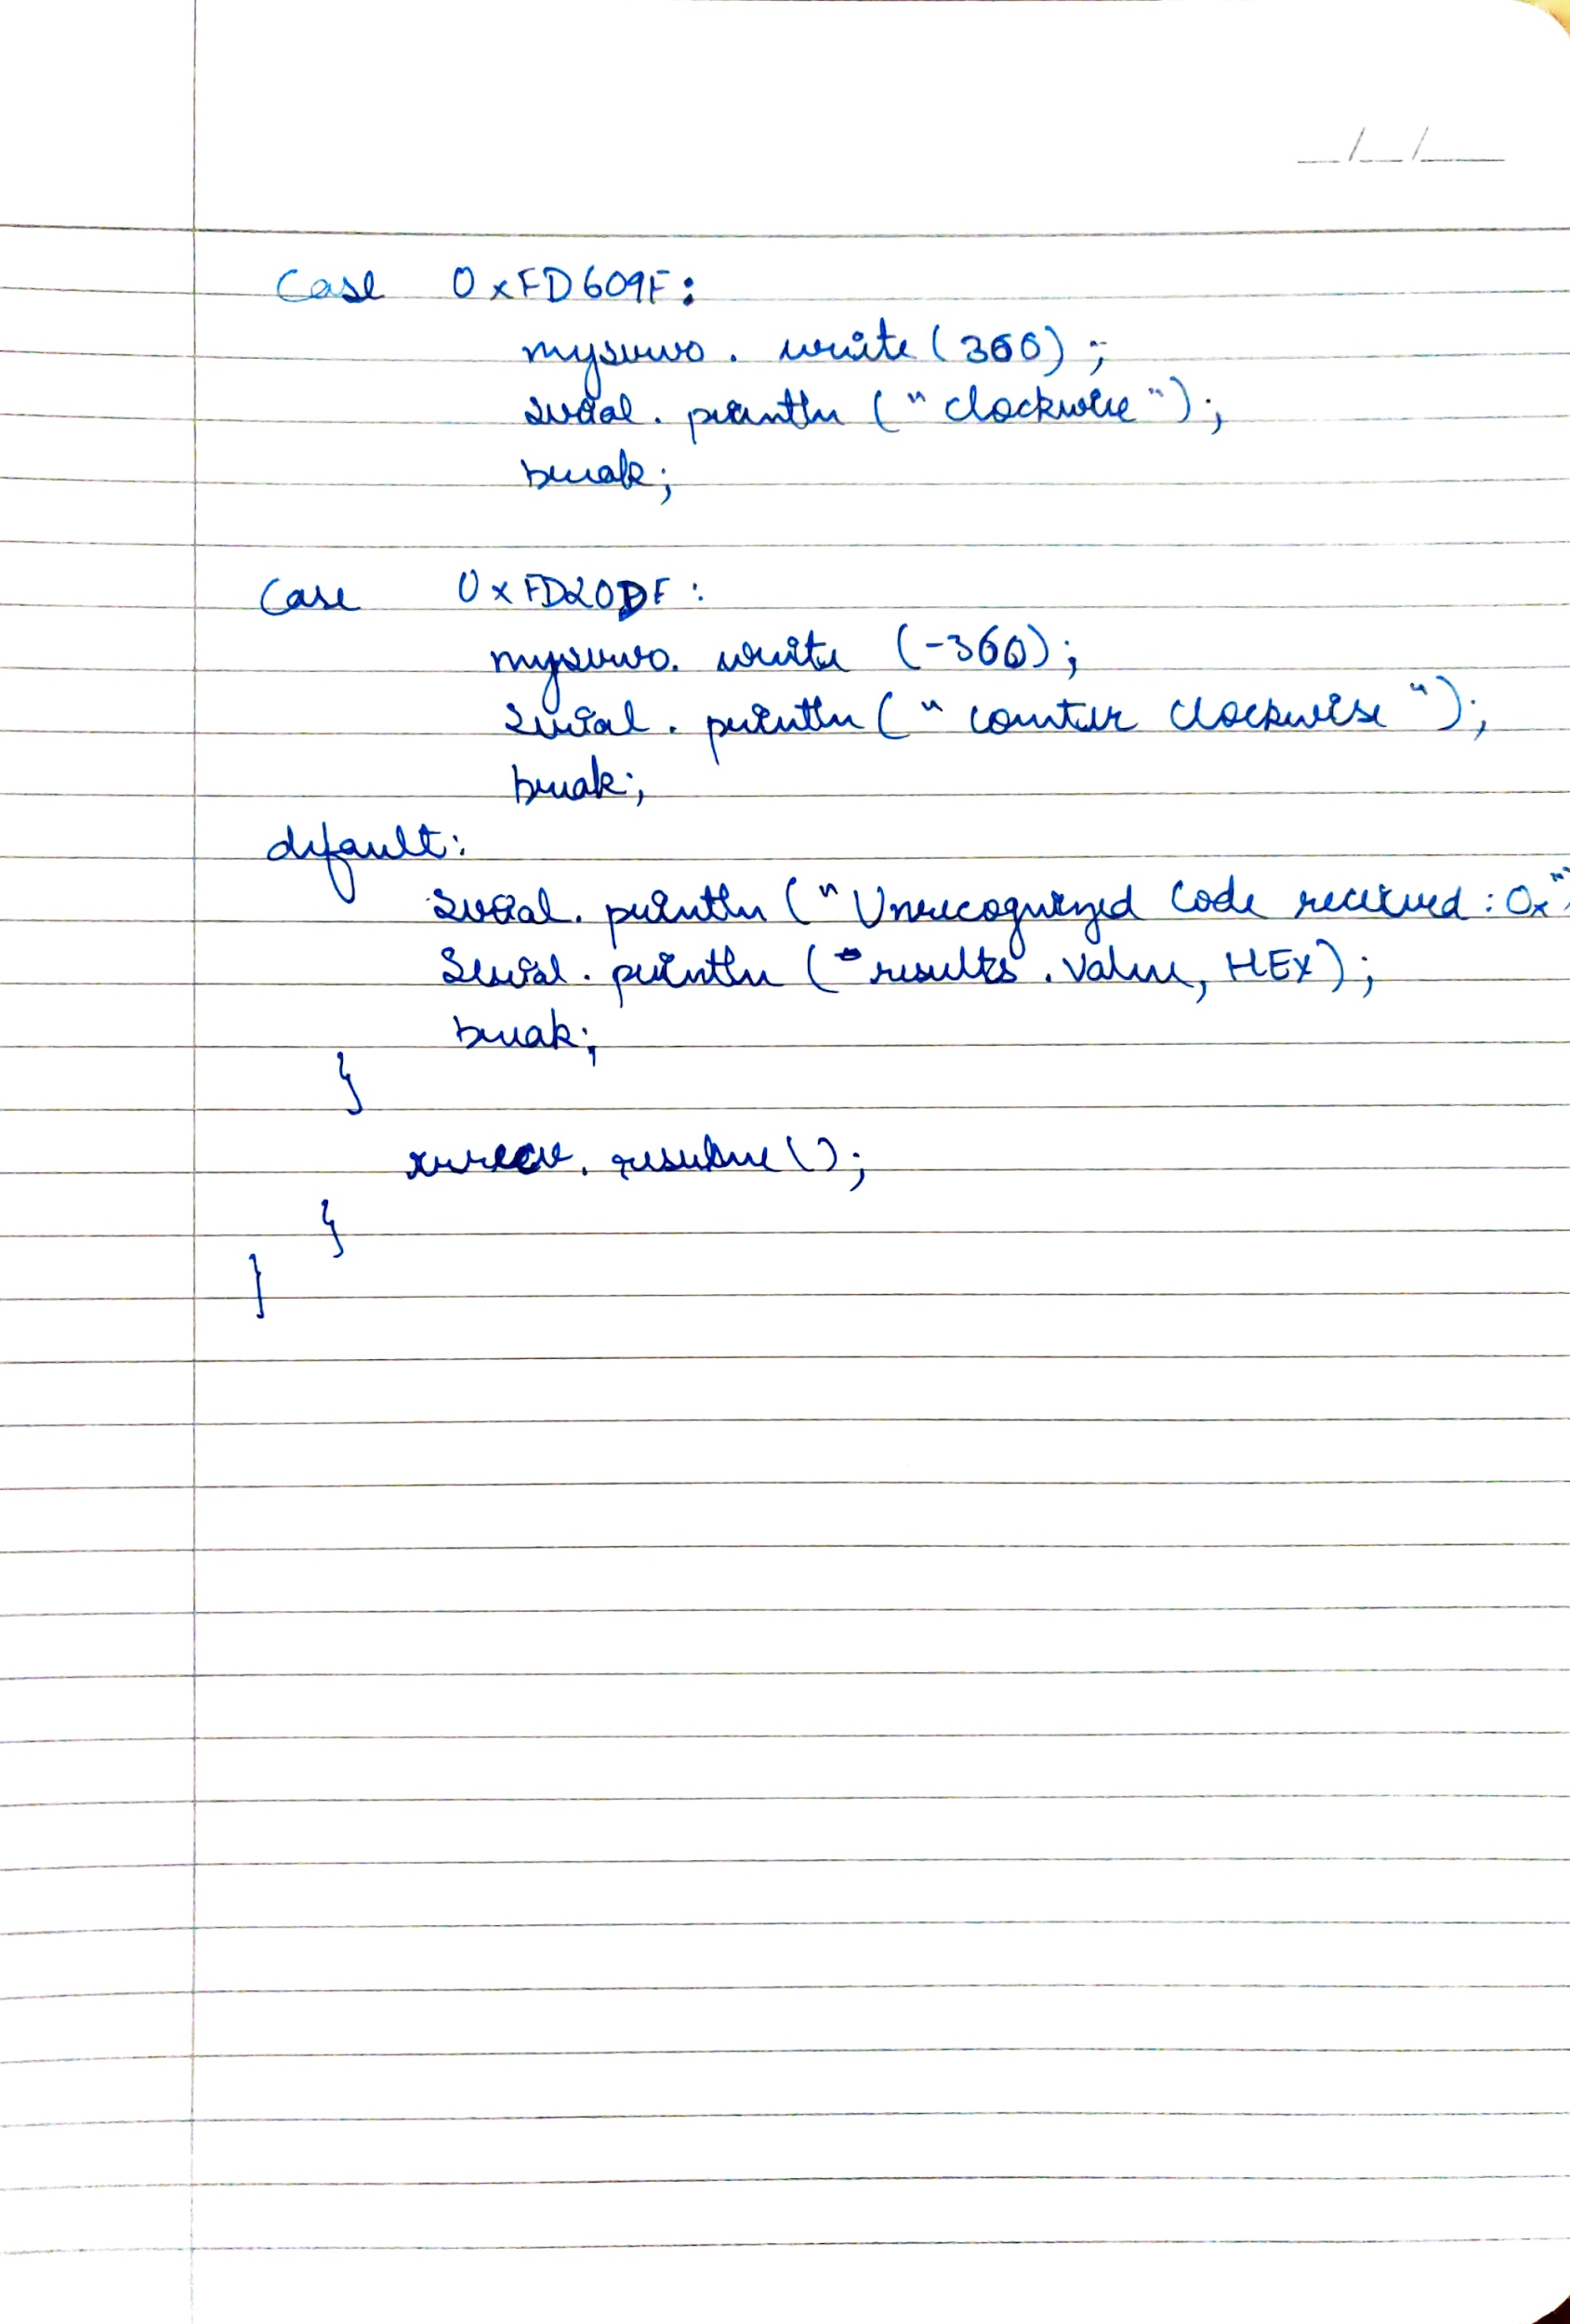 Case 0xFD609F:
myservo. write (360);
serial. println ("clockwise");
break;
Case 0xFD20DF:
myservo. write (-360);
serial. println ("counter clockwise");
break;
default:
serial. println ("Unrecognized code received: 0x"
Serial. println (results. value, HEX);
break;
}
irrecv. resume ();
}
}